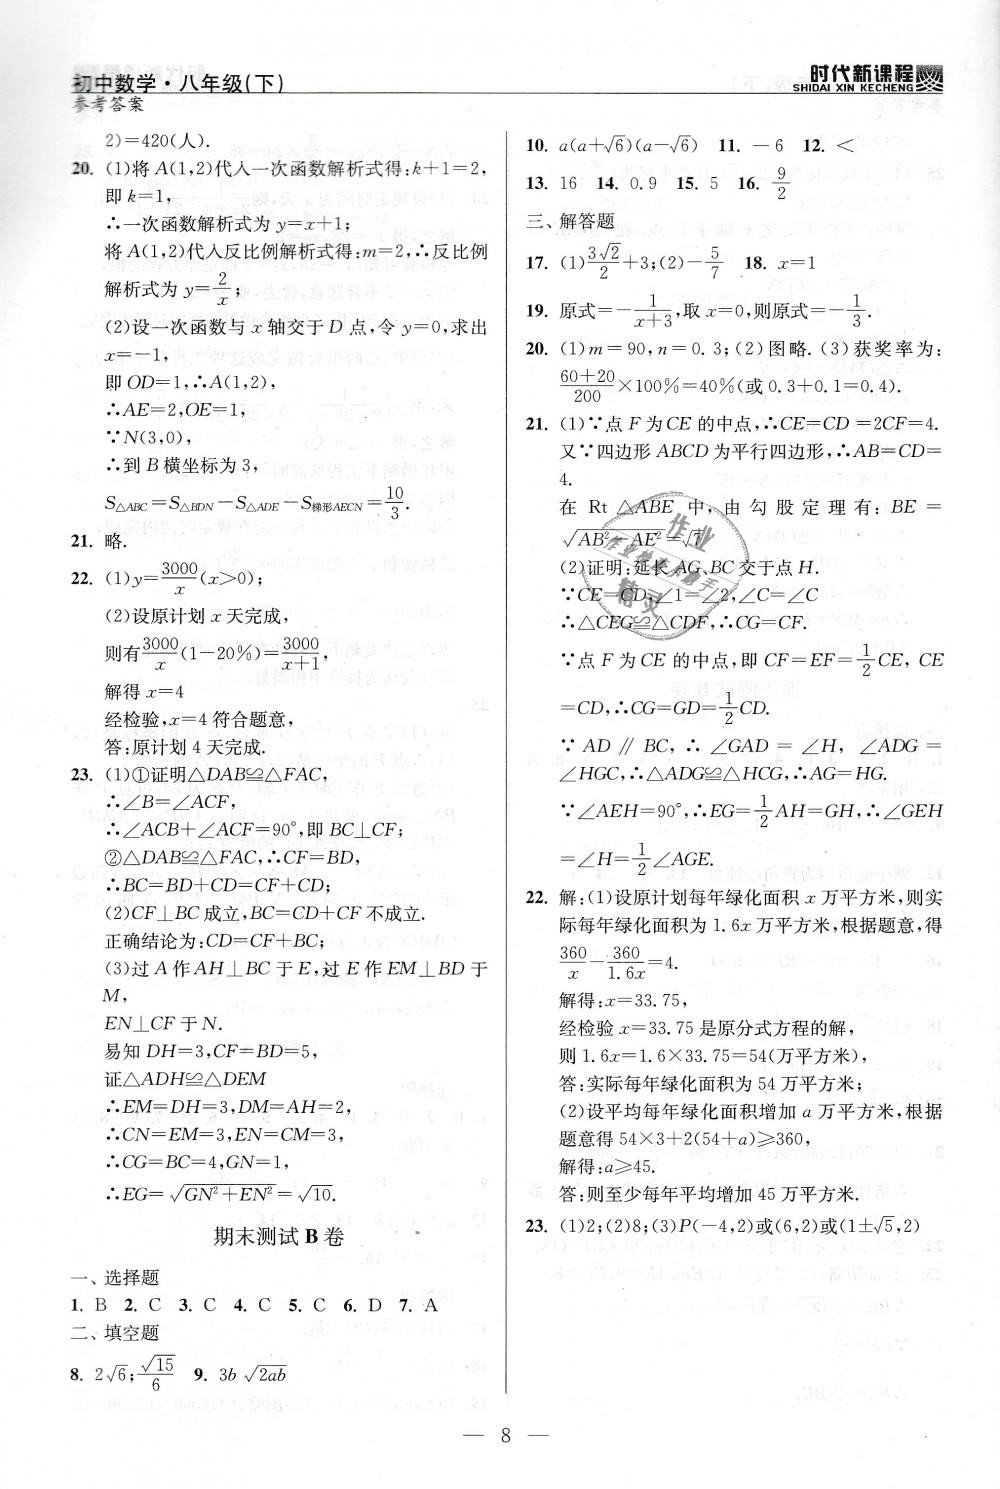 初中数学·八年级(下)
参考答案
时代新课程
SHIDAI XIN KECHENG
2)=420(人).
20. (1)将 A(1,2)代人一次函数解析式得:k+1=2,
即 k=1,
∴一次函数解析式为 y=x+1;
将 A(1,2)代人反比例解析式得:m=2,∴反比例
解析式为 y=2/x;
(2)设一次函数与 x 轴交于 D 点,令 y=0,求出
x=-1,
即 OD=1,∴A(1,2),
∴AE=2,OE=1,
∵N(3,0),
∴到 B 横坐标为 3,
S△ABC=S△BDN-S△ADE-S梯形AECN=10/3.
21. 略.
22. (1)y=3000/x(x>0);
(2)设原计划 x 天完成,
则有3000/x(1-20%)=3000/(x+1),
解得 x=4
经检验,x=4 符合题意,
答:原计划 4 天完成.
23. (1)①证明△DAB≌△FAC,
∴∠B=∠ACF,
∴∠ACB+∠ACF=90°,即 BC⊥CF;
②△DAB≌△FAC,∴CF=BD,
∴BC=BD+CD=CF+CD;
(2)CF⊥BC 成立,BC=CD+CF 不成立.
正确结论为:CD=CF+BC;
(3)过 A 作 AH⊥BC 于 E,过 E 作 EM⊥BD 于
M,
EN⊥CF 于 N.
易知 DH=3,CF=BD=5,
证△ADH≌△DEM
∴EM=DH=3,DM=AH=2,
∴CN=EM=3,EN=CM=3,
∴CG=BC=4,GN=1,
∴EG=√(GN²+EN²)=√10.
期末测试 B 卷
一、选择题
1. B 2. C 3. C 4. C 5. C 6. D 7. A
二、填空题
8. 2√6;√15/6 9. 3b√2ab
10. a(a+√6)(a-√6) 11. -6 12. <
13. 16 14. 0.9 15. 5 16. 9/2
三、解答题
17. (1)3√2/2+3;(2)-5/7 18. x=1
19. 原式=-1/(x+3),取 x=0,则原式=-1/3.
20. (1)m=90,n=0.3;(2)图略.(3)获奖率为:
(60+20)/200×100%=40%(或 0.3+0.1=0.4).
21. (1)∵点 F 为 CE 的中点,∴CE=CD=2CF=4.
又∵四边形 ABCD 为平行四边形,∴AB=CD=
4.
在 Rt △ABE 中,由勾股定理有:BE=
√(AB²-AE²)=√7
(2)证明:延长 AG、BC 交于点 H.
∵CE=CD,∠1=∠2,∠C=∠C
∴△CEG≌△CDF,∴CG=CF.
∵点 F 为 CE 的中点,即 CF=EF=1/2CE, CE
=CD,∴CG=GD=1/2CD.
∵ AD ∥ BC, ∴ ∠GAD = ∠H, ∠ADG=
∠HGC,∴△ADG≌△HCG,∴AG=HG.
∵∠AEH=90°,∴EG=1/2AH=GH,∴∠GEH
=∠H=1/2∠AGE.
22. 解:(1)设原计划每年绿化面积 x 万平方米,则实
际每年绿化面积为 1.6x 万平方米,根据题意,得
360/x-360/1.6x=4.
解得:x=33.75,
经检验 x=33.75 是原分式方程的解,
则 1.6x=1.6×33.75=54(万平方米),
答:实际每年绿化面积为 54 万平方米;
(2)设平均每年绿化面积增加 a 万平方米,根据
题意得 54×3+2(54+a)≥360,
解得:a≥45.
答:则至少每年平均增加 45 万平方米.
23. (1)2;(2)8;(3)P(-4,2)或(6,2)或(1±√5,2)
— 8 —